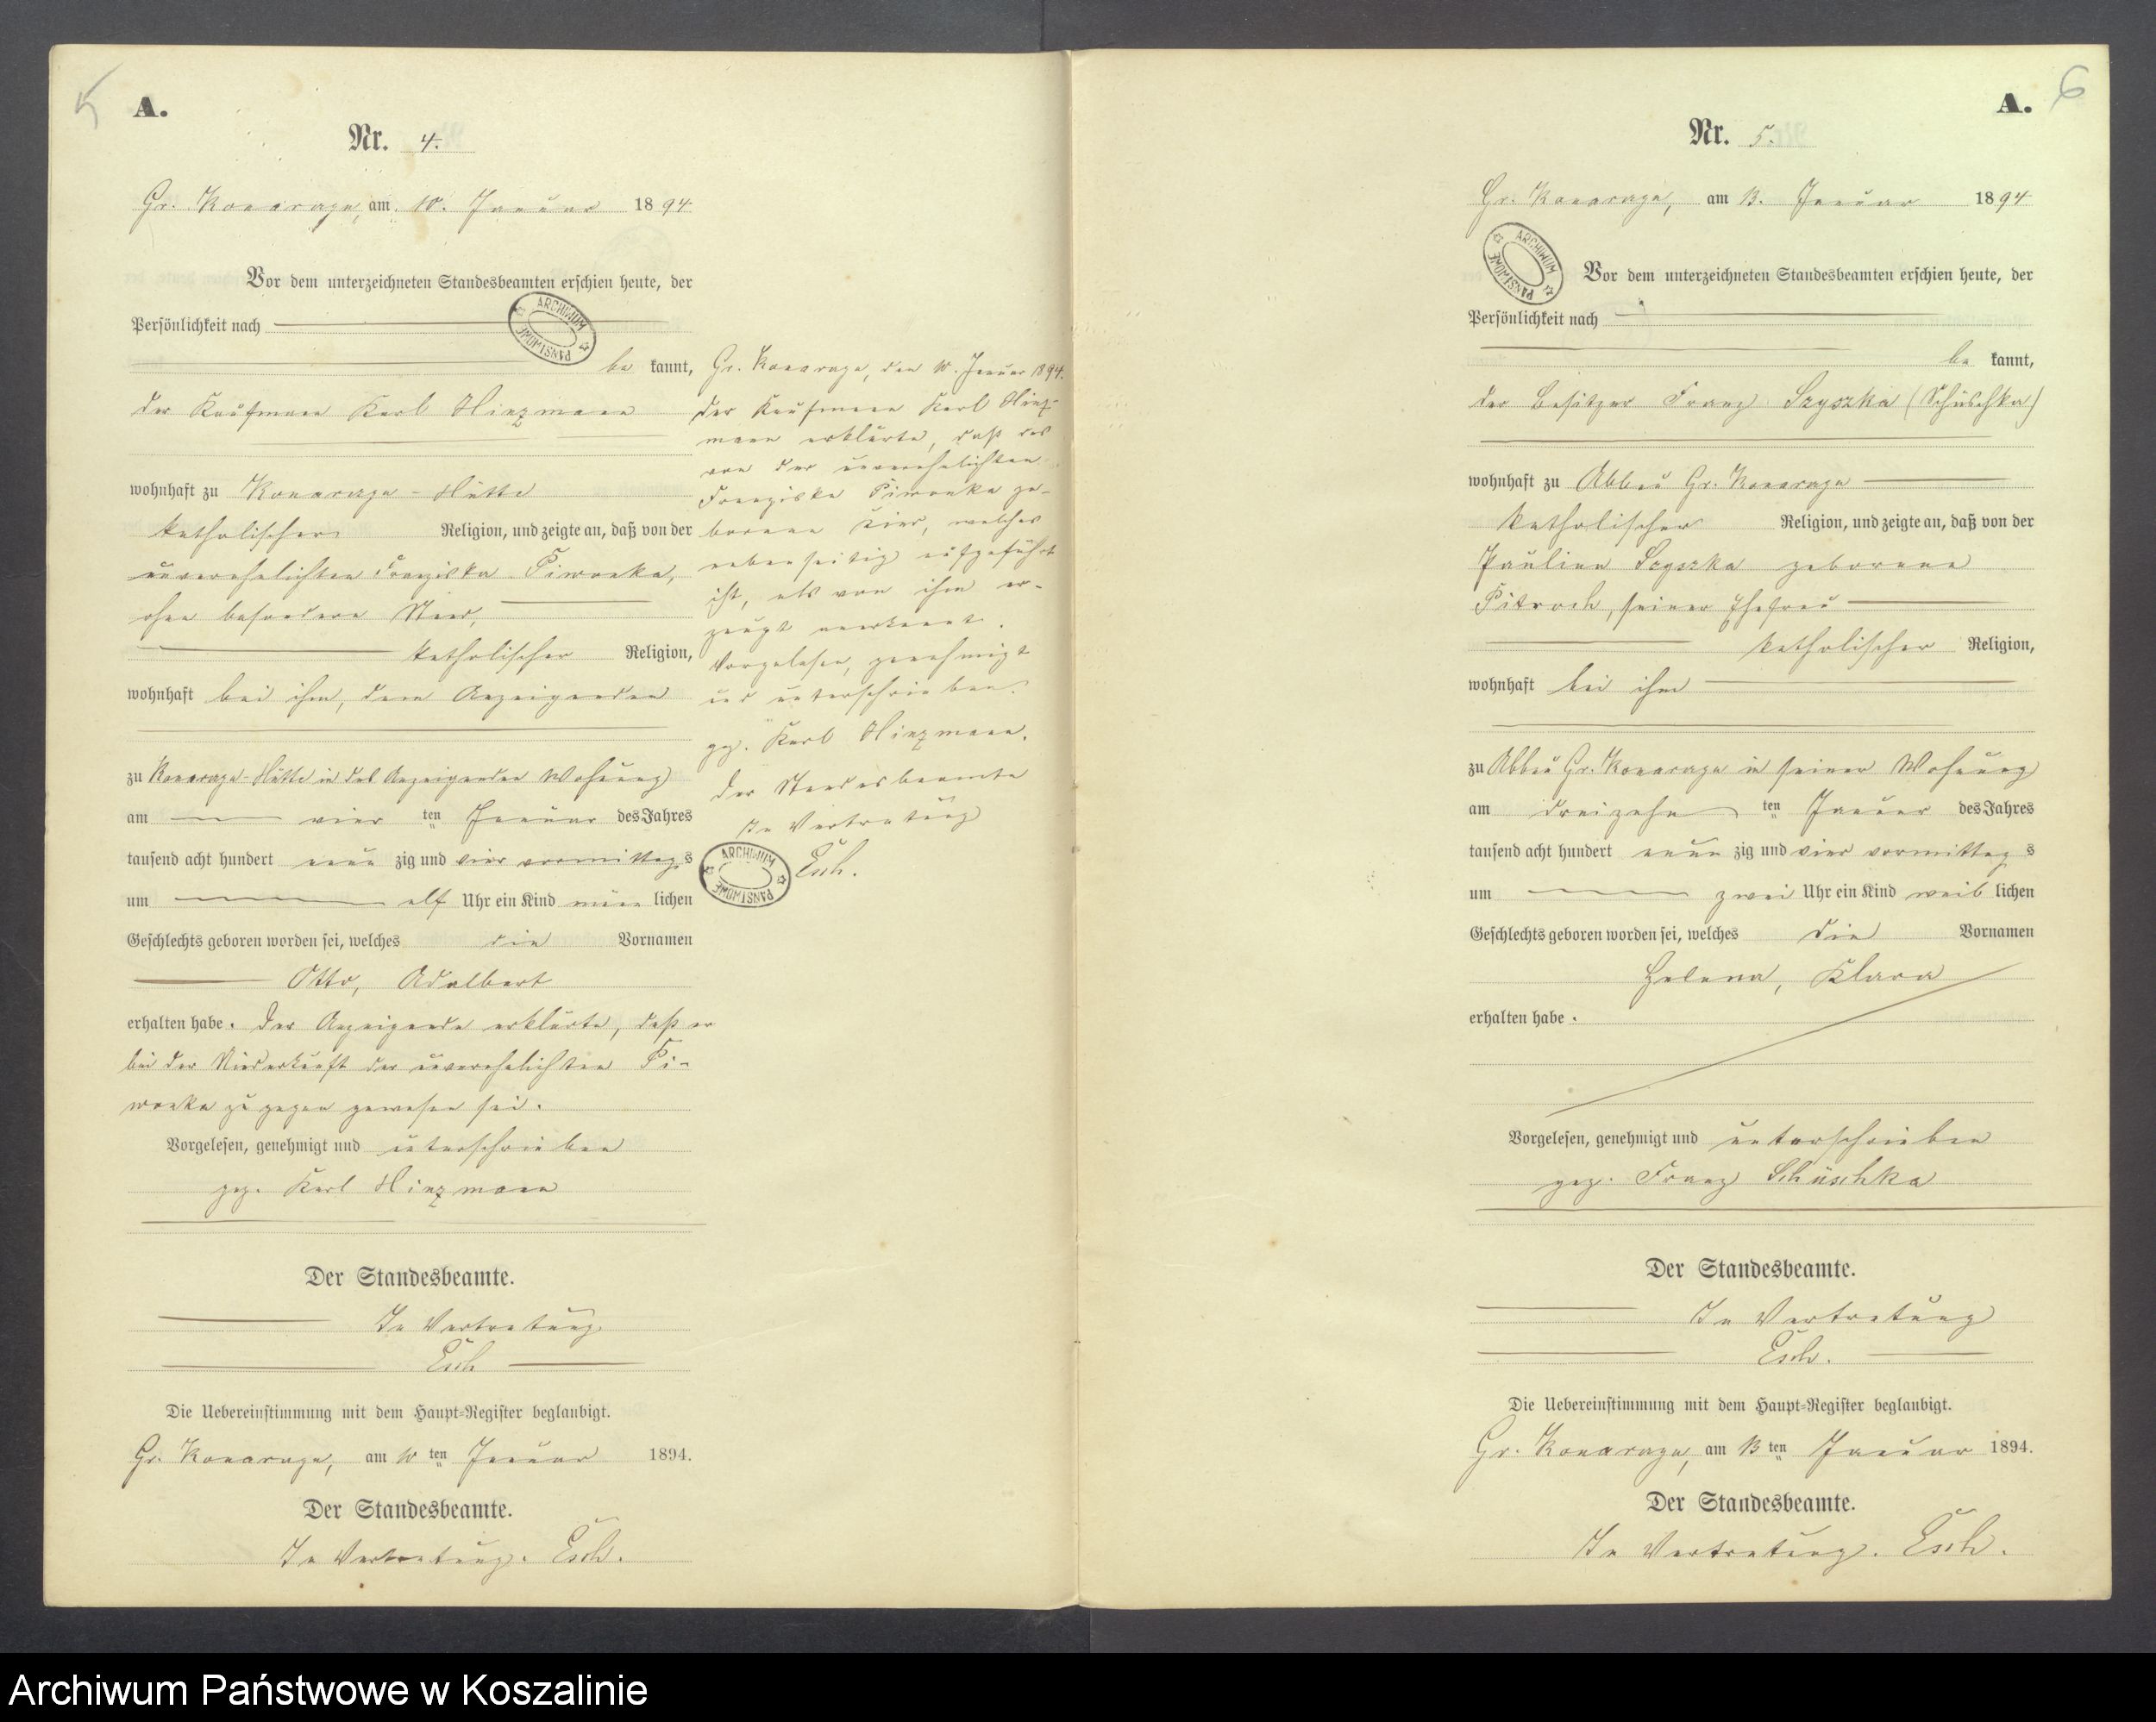 5
A.
Nr. 4.
Gr. Konarzyn, am 10. Januar 1894
Vor dem unterzeichneten Standesbeamten erschien heute, der
Persönlichkeit nach
ARCHIWUM PAŃSTWOWE
be kannt,
der Kaufmann Karl Hinzmann
wohnhaft zu Konarzyn-Hütte
katholischer Religion, und zeigte an, daß von der
unverehelichten Franziska Piwonka,
ohne besonderen Stand,
katholischer Religion,
wohnhaft bei ihm, dem Anzeigenden
zu Konarzyn-Hütte in des Anzeigenden Wohnung
am vier ten Januar des Jahres
tausend acht hundert neun zig und vier vormittags
um elf Uhr ein Kind männ lichen
Geschlechts geboren worden sei, welches die Vornamen
Otto, Adalbert
erhalten habe. Der Anzeigende erklärte, daß er
bei der Niederkunft der unverehelichten Pi-
wonka zugegen gewesen sei.
Vorgelesen, genehmigt und unterschrieben
gez. Karl Hinzmann
Der Standesbeamte.
In Vertretung
Esch
Die Uebereinstimmung mit dem Haupt-Register beglaubigt.
Gr. Konarzyn, am 10ten Januar 1894.
Der Standesbeamte.
In Vertretung. Esch.
Gr. Konarzyn, den 10. Januar 1894.
Der Kaufmann Karl Hinz-
mann erklärte, daß das
von der unverehelichten
Franziska Piwonka ge-
borene Kind, welches
nebenseitig aufgeführt
ist, als von ihm er-
zeugt anerkennt.
Vorgelesen, genehmigt
und unterschrieben.
gez. Karl Hinzmann.
Der Standesbeamte
In Vertretung
Esch.
ARCHIWUM PAŃSTWOWE
6
A.
Nr. 5.
Gr. Konarzyn, am 13. Januar 1894
ARCHIWUM PAŃSTWOWE
Vor dem unterzeichneten Standesbeamten erschien heute, der
Persönlichkeit nach
be kannt,
der Besitzer Franz Szyszka (Schüschka)
wohnhaft zu Abbau Gr. Konarzyn
katholischer Religion, und zeigte an, daß von der
Pauline Szyszka geborene
seiner Ehefrau
katholischer Religion,
wohnhaft bei ihm
zu Abbau Gr. Konarzyn in seiner Wohnung
am dreizehn ten Januar des Jahres
tausend acht hundert neun zig und vier vormittag s
um zwei Uhr ein Kind weib lichen
Geschlechts geboren worden sei, welches die Vornamen
Helena, Klara
erhalten habe.
Vorgelesen, genehmigt und unterschrieben
gez. Franz Schüschka
Der Standesbeamte.
In Vertretung
Esch.
Die Uebereinstimmung mit dem Haupt-Register beglaubigt.
Gr. Konarzyn, am 13ten Januar 1894.
Der Standesbeamte.
In Vertretung. Esch.
Archiwum Państwowe w Koszalinie